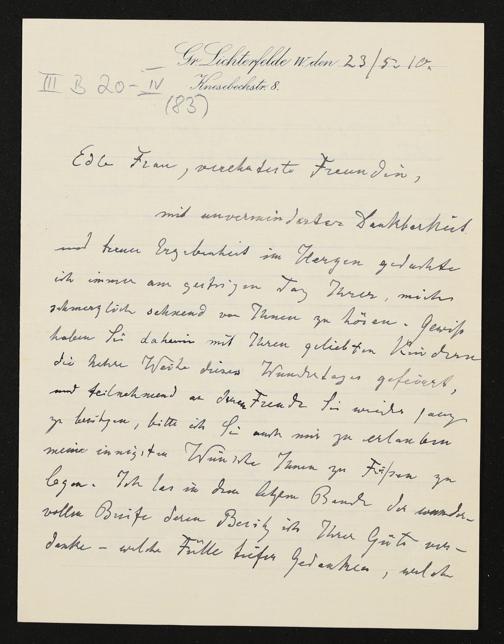 Gr. Lichterfelde W. den 23/5. 10.
Knesebeckstr. 8.
III B 20-IV
(83)
Edle Frau, verehrteste Freundin,
mit unverminderter Dankbarkeit
und treuer Ergebenheit im Herzen gedachte
ich immer am gestrigen Tag Ihrer, mich
schmerzlich sehnend von Ihnen zu hören. Gewiß
haben Sie daheim mit Ihren geliebten Kindern
die hehre Weihe dieses Wundertages gefeiert,
und teilnehmend an deren Freude Sie wieder ganz
zu besitzen, bitte ich Sie auch mir zu erlauben
meine innigsten Wünsche Ihnen zu Füßen zu
legen. Ich las in dem letzten Bande der wunder-
vollen Briefe deren Besitz ich Ihrer Güte ver-
danke – welche Fülle tiefer Gedanken, welch